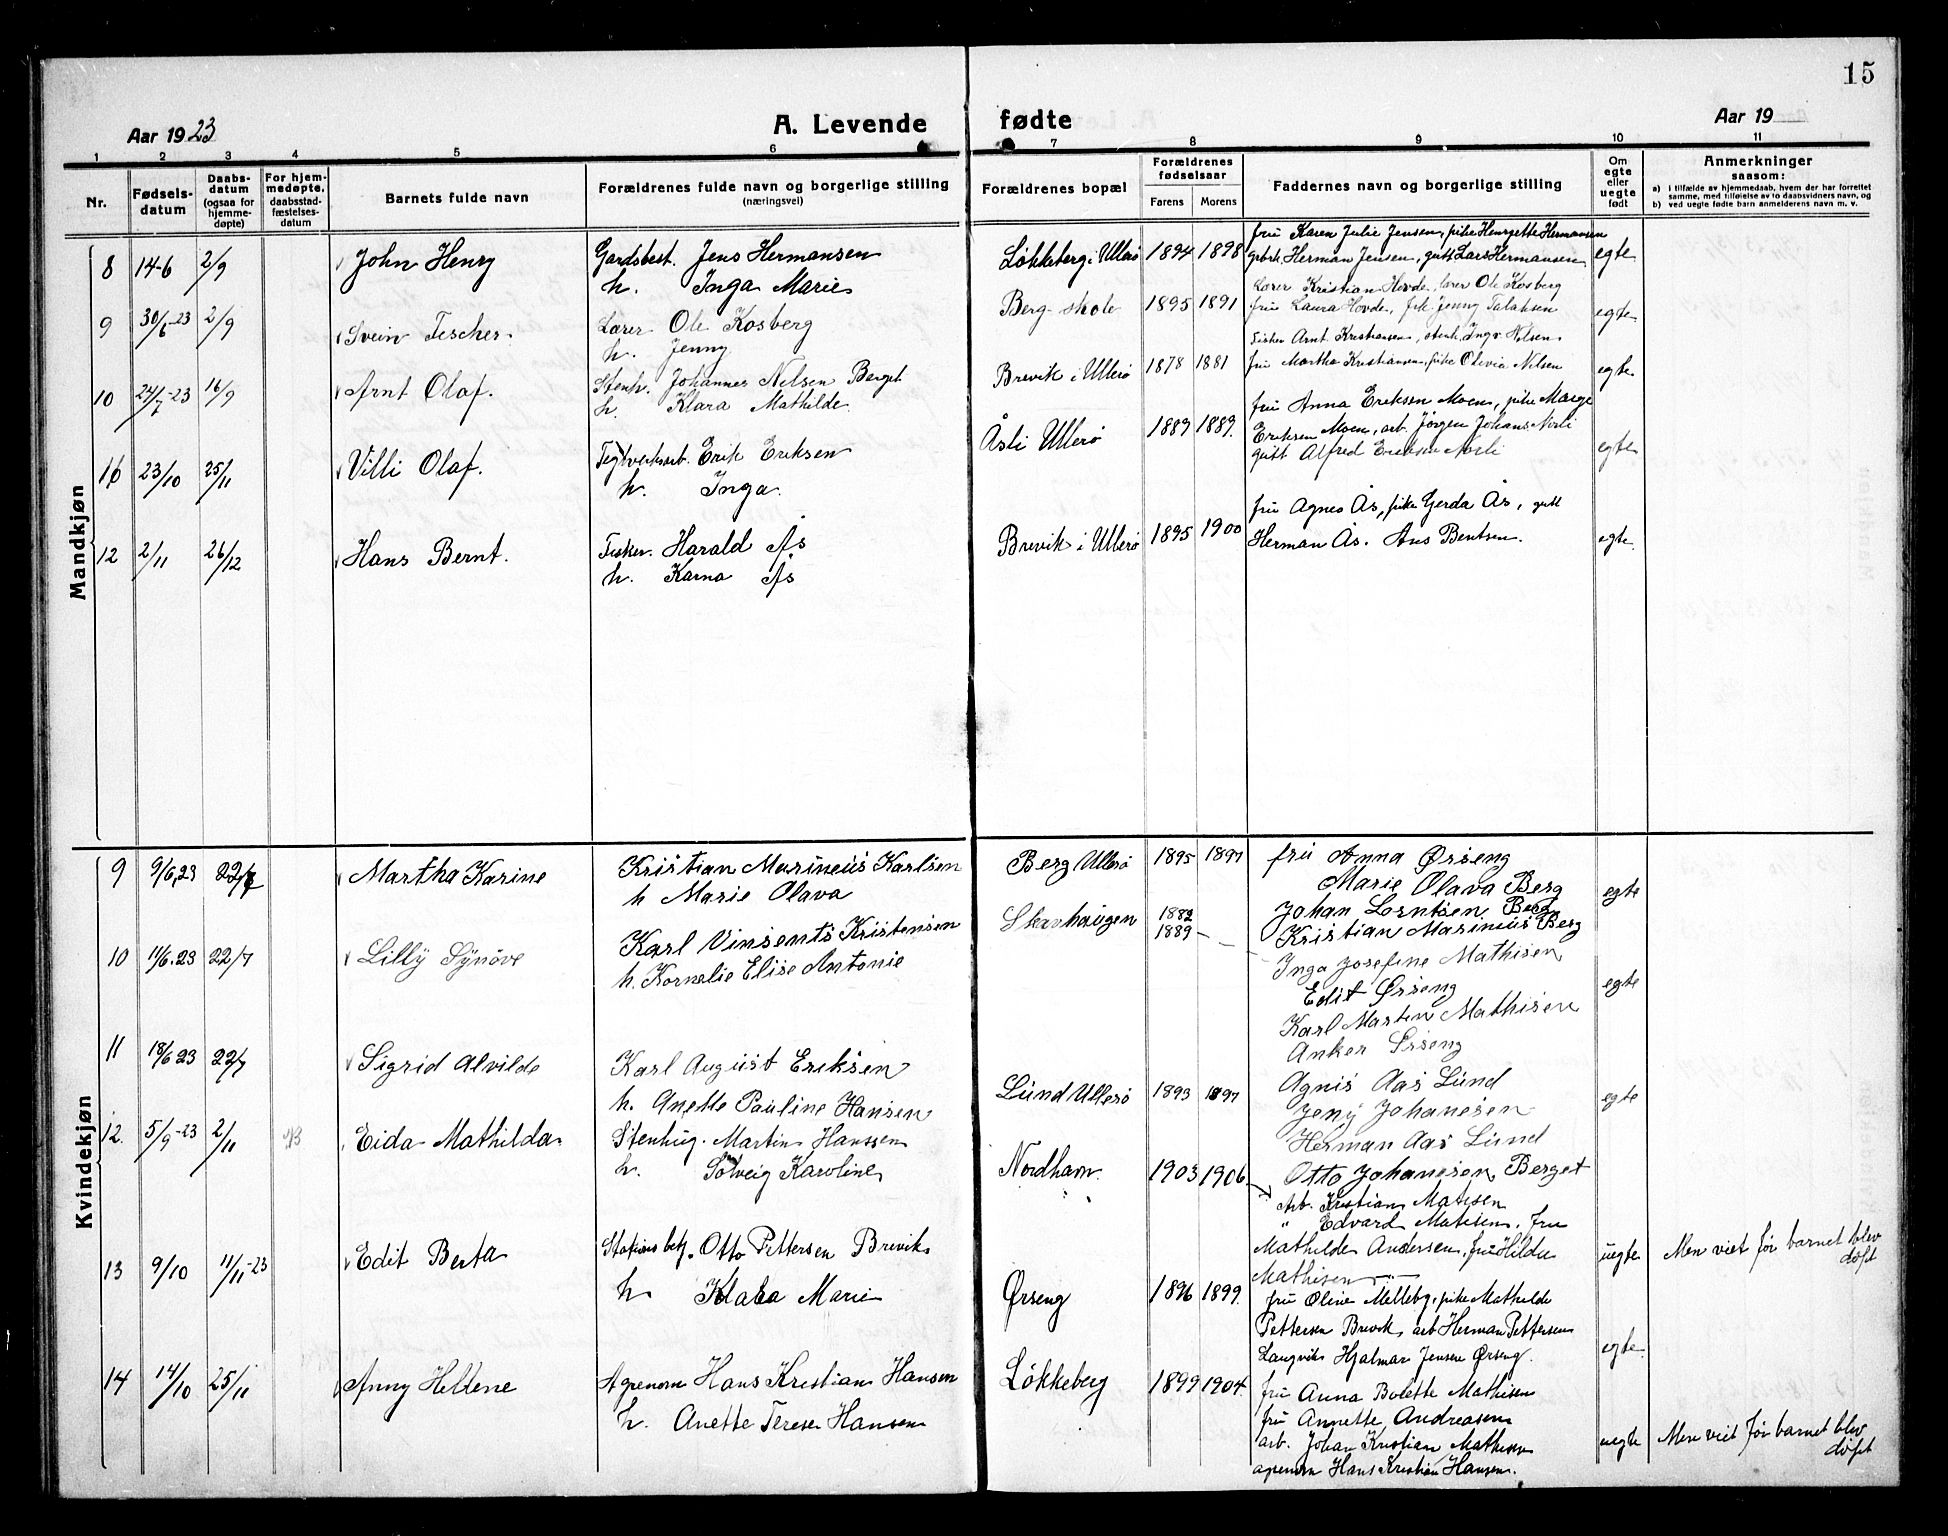 15
Aar 1923
A. Levende fødte
Aar 19
1 2 3 4 5 6 7 8 9 10 11
Nr.
Fødsels-
datum
Daabs-
datum
(ogsaa for
hjemme-
døpte)
For hjem-
medøpte,
daabsstad-
fæstelses-
datum
Barnets fulde navn
Forældrenes fulde navn og borgerlige stilling
(næringsvei)
Forældrenes bopæl
Forældrenes
fødselsaar
Farens Morens
Faddernes navn og borgerlige stilling
Om
egte
eller
uegte
født
Anmerkninger
saasom:
a) i tilfælde av hjemmedaab, hvem der har forrettet
samme, med tilføielse av to daabsvidners navn, og
b) ved uegte fødte barn anmelderens navn m. v.
Mandkjøn
8 14-6 2/9 John Henry
Gardsbest. Jens Hermansen
h. Inga Marie
Løkkeberg i Ullerø 1894 1898
fru Karen Julie Jensen, pike Henryette Hermansen
Grbrk. Herman Jensen, gutt Lars Hermansen
egte
9 30/6-23 2/9 Svein Fescher
Lærer Ole Kosberg
h. Jenny
Berg skole 1895 1891
Lærer Kristian Hovde, lærer Ole Kosberg
fru Laura Hovde, frk. Jenny
egte
10 24/7-23 16/9 Arnt Olaf.
Stenh. Johannes Nilsen Berget
h. Klara Mathilde
Brevik i Ullerø 1878 1881
Fisker Arnt Kristiansen, stenh. Ingv. Nilsen
fru Martha Kristiansen, pike Olivia Nilsen
egte
16 23/10 25/11 Villi Olaf.
Teglverksarb. Erik Eriksen
h. Inga.
Åsli Ullerø 1889 1889.
fru Anna Eriksen Moen, pike Marge
Eriksen Moen, arb. Jørgen Johans. Norli
gutt Alfred Eriksen Norli
egte
12 2/11 26/12 Hans Bernt.
Fisker. Harald Ås
h. Karna Ås
Brevik i Ullerø 1895 1900
fru Agnes Ås, pike Gerda Ås, gutt
Herman Ås. Ans Bentsen.
egte
Kvindekjøn
9 9/6.23 22/7 Martha Karine
Kristian Marineüs Karlsen
h Marie Olava
Berg Ullerø 1895 1897
frü Anna Ørseng
Marie Olava Berg
Johan Lorntsen Berg
Kristian Marineüs Berg
egte
10 11/6.23 22/7 Lilly Synöve
Karl Vinsents Kristensen
h. Kornelie Elise Antonie
Skavhaugen 1882
1889
Inga Josefine Mathisen
Edit Ørseng
Karl Marten Mathisen
Anker Ørseng
egte
11 18/6 23 22/7 Sigrid Alvilde
Karl August Eriksen
h. Anette Pauline Hansen
Lünd Ullerø 1893 1897
Agnis Aas Lünd
Jeny Johanesen
Herman Aas Lünd
Otto Johanesen Berget
egte
12. 5/9-23 2/11 Eida Mathilda
Stenhug. Martin Hanssen
h. Solveig Karoline
Nordhavn. 1903 1906
Arb. Kristian Matisen
" Edvard Matisen, fru
Mathilde Andersen, fru Hilda
Mathisen
uegte Men viet før barnet blev
døpt
13 9/10 11/11-23 Edit Berta
Stations betj. Otto Pettersen Brevik
h Klara Marie
Ørseng 1896 1899.
fru Oline Melleby, pike Mathilde
Pettersen Brevik, arb Herman Pettersen
Langvik Hjalmar Jensen Ørseng.
egte
14 14/10 25/11 Anny Hellene
Agrenom Hans Kristian Hansen
h. Anette Terese Hansen
Løkkeberg 1899 1904.
fru Anna Bolette Mathisen
fru Annette Andreasen
arb. Johan Kristian Mathissen
agrenom Hans Kristian Hansen.
uegte Men viet før barnet blev
døpt